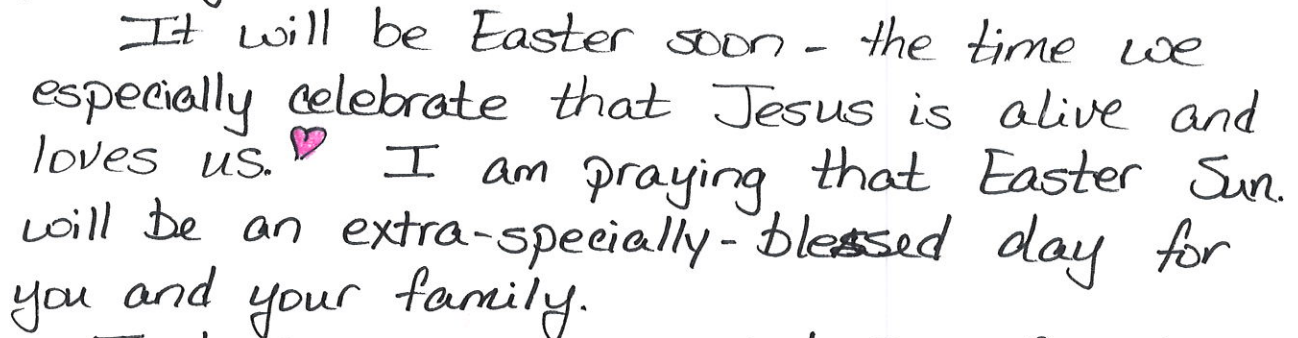 It will be Easter soon - the time we
especially celebrate that Jesus is alive and
loves us. I am praying that Easter Sun.
will be an extra-specially-blessed day for
you and your family.